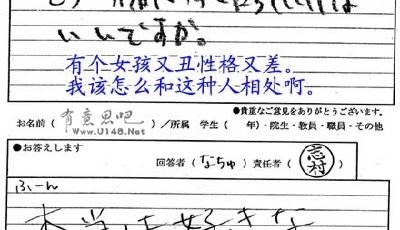 いいですか。
有个女孩又丑性格又差。
我该怎么和这种人相处啊。
●貴重なご意見をありがとうございます。
お名前( 有意思吧 )/所属 学生( 年)・院生・教員・職員・その他
Www.U148.Net
●お答えします
回答者(なちゅ)責任者(志村)
ふーん
大学は好きな